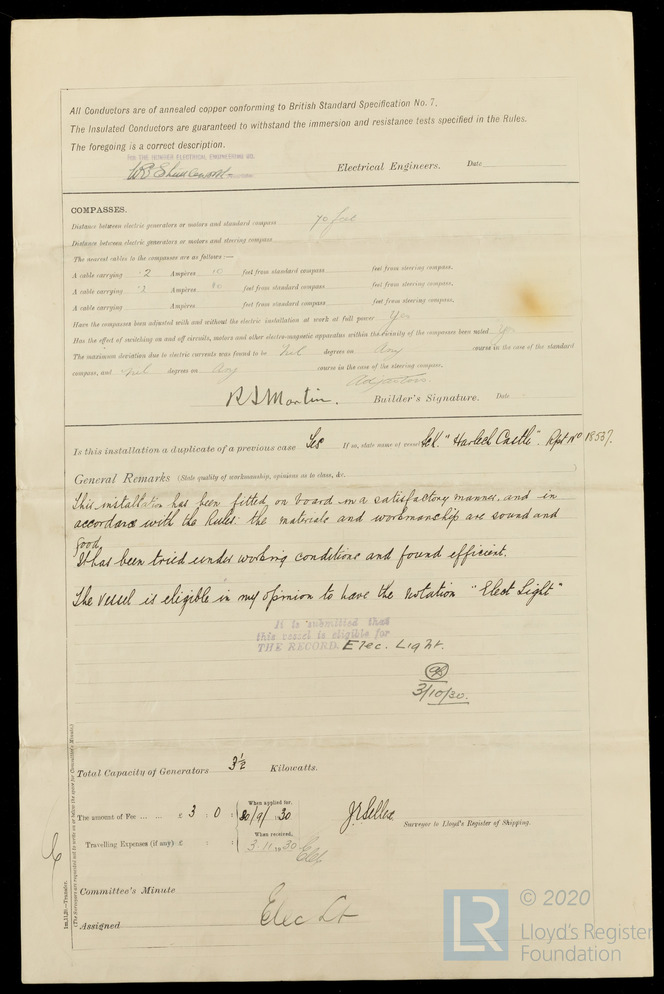 All Conductors are of annealed copper conforming to British Standard Specification No. 7.
The Insulated Conductors are guaranteed to withstand the immersion and resistance tests specified in the Rules.
The foregoing is a correct description.
FOR THE HUMBER ELECTRICAL ENGINEERING CO.
Electrical Engineers. Date
COMPASSES.
Distance between electric generators or motors and standard compass 70 feet
Distance between electric generators or motors and steering compass
The nearest cables to the compasses are as follows :—
A cable carrying 2 Ampères 10 feet from standard compass feet from steering compass.
A cable carrying 2 Ampères feet from standard compass feet from steering compass.
A cable carrying Ampères feet from standard compass feet from steering compass.
Have the compasses been adjusted with and without the electric installation at work at full power Yes
Has the effect of switching on and off circuits, motors and other electro-magnetic apparatus within the vicinity of the compasses been noted Yes
The maximum deviation due to electric currents was found to be Nil degrees on Any course in the case of the standard
compass, and Nil degrees on Any course in the case of the steering compass.
R S Martin. Builder's Signature. Date
Is this installation a duplicate of a previous case Yes If so, state name of vessel "Harlech Castle". Rpt No 18537.
General Remarks (State quality of workmanship, opinions as to class, &c. )
This installation has been fitted on board in a satisfactory manner, and in
accordance with the Rules: the materials and workmanship are sound and
good.
It has been tried under working conditions and found efficient.
The vessel is eligible in my opinion to have the notation "Elect Light"
It is submitted that
this vessel is eligible for
THE RECORD. Elec. Light.
3/10/30.
Total Capacity of Generators 3½ Kilowatts.
The amount of Fee ... ... £ 3 : 0 : When applied for, 30/9/1930
When received,
Travelling Expenses (if any) £ : : 3.11.1930
Surveyor to Lloyd's Register of Shipping.
Committee's Minute
Assigned Elec Lt
1m,11,29—Transfer.
(The Surveyors are requested not to write on or below the space for Committee's Minute.)
LR © 2020
Lloyd's Register
Foundation